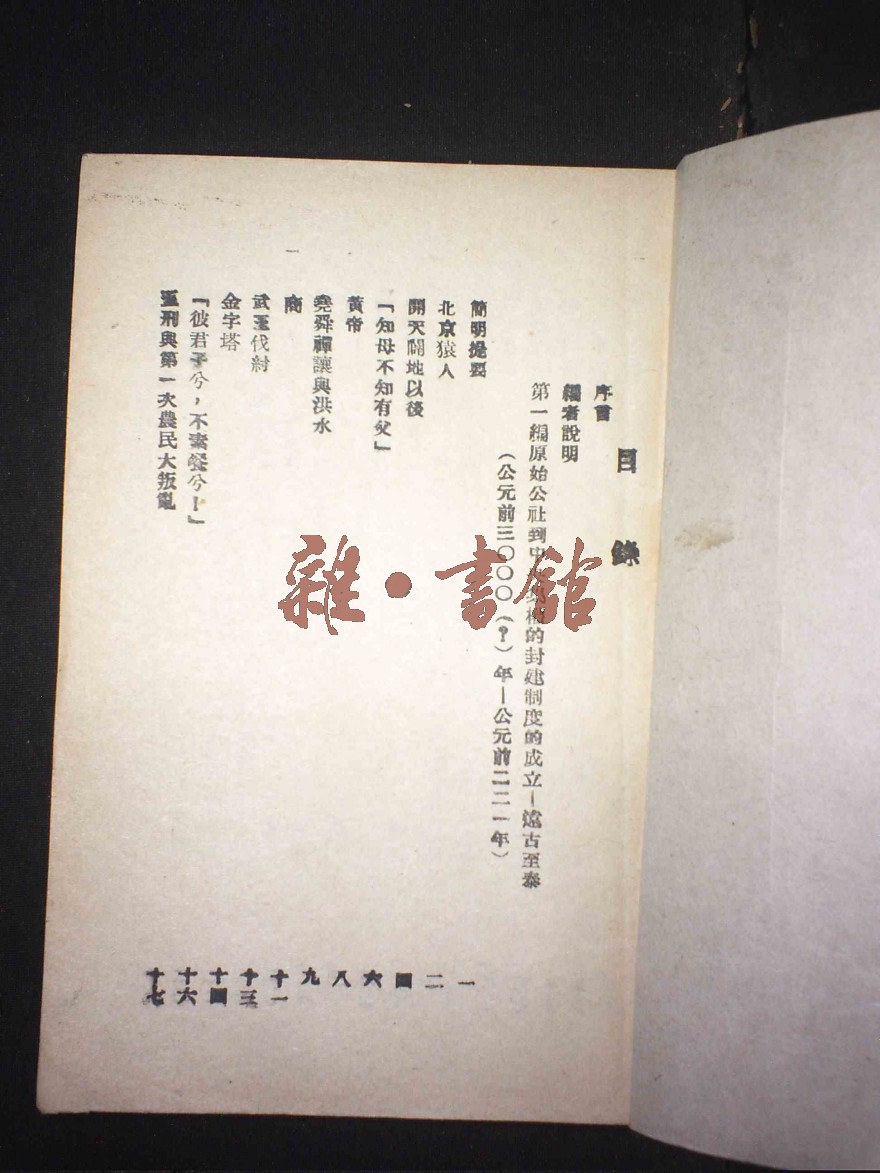 目錄
序言
編者說明
第一編原始公社到中的封建制度的成立—遠古至泰
（公元前三〇〇〇（？）年—公元前二二一年）
簡明提要
一
北京猿人
二
開天闢地以後
四
「知母不知有父」
六
黃帝
八
堯舜禪讓與洪水
九
商
十一
武王伐紂
十三
金字塔
十四
「彼君子兮，不素餐兮！」
十六
刑與第一次農民大叛亂
十七
雜·書館